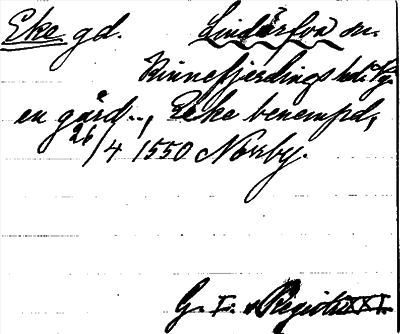 Eke gd. Lindärfva sn.
Kinnefjerdings hd. Vg.
en gård.., Eeke benempd,
26/4 1550 Norrby.
G. I. Registr. XXI.